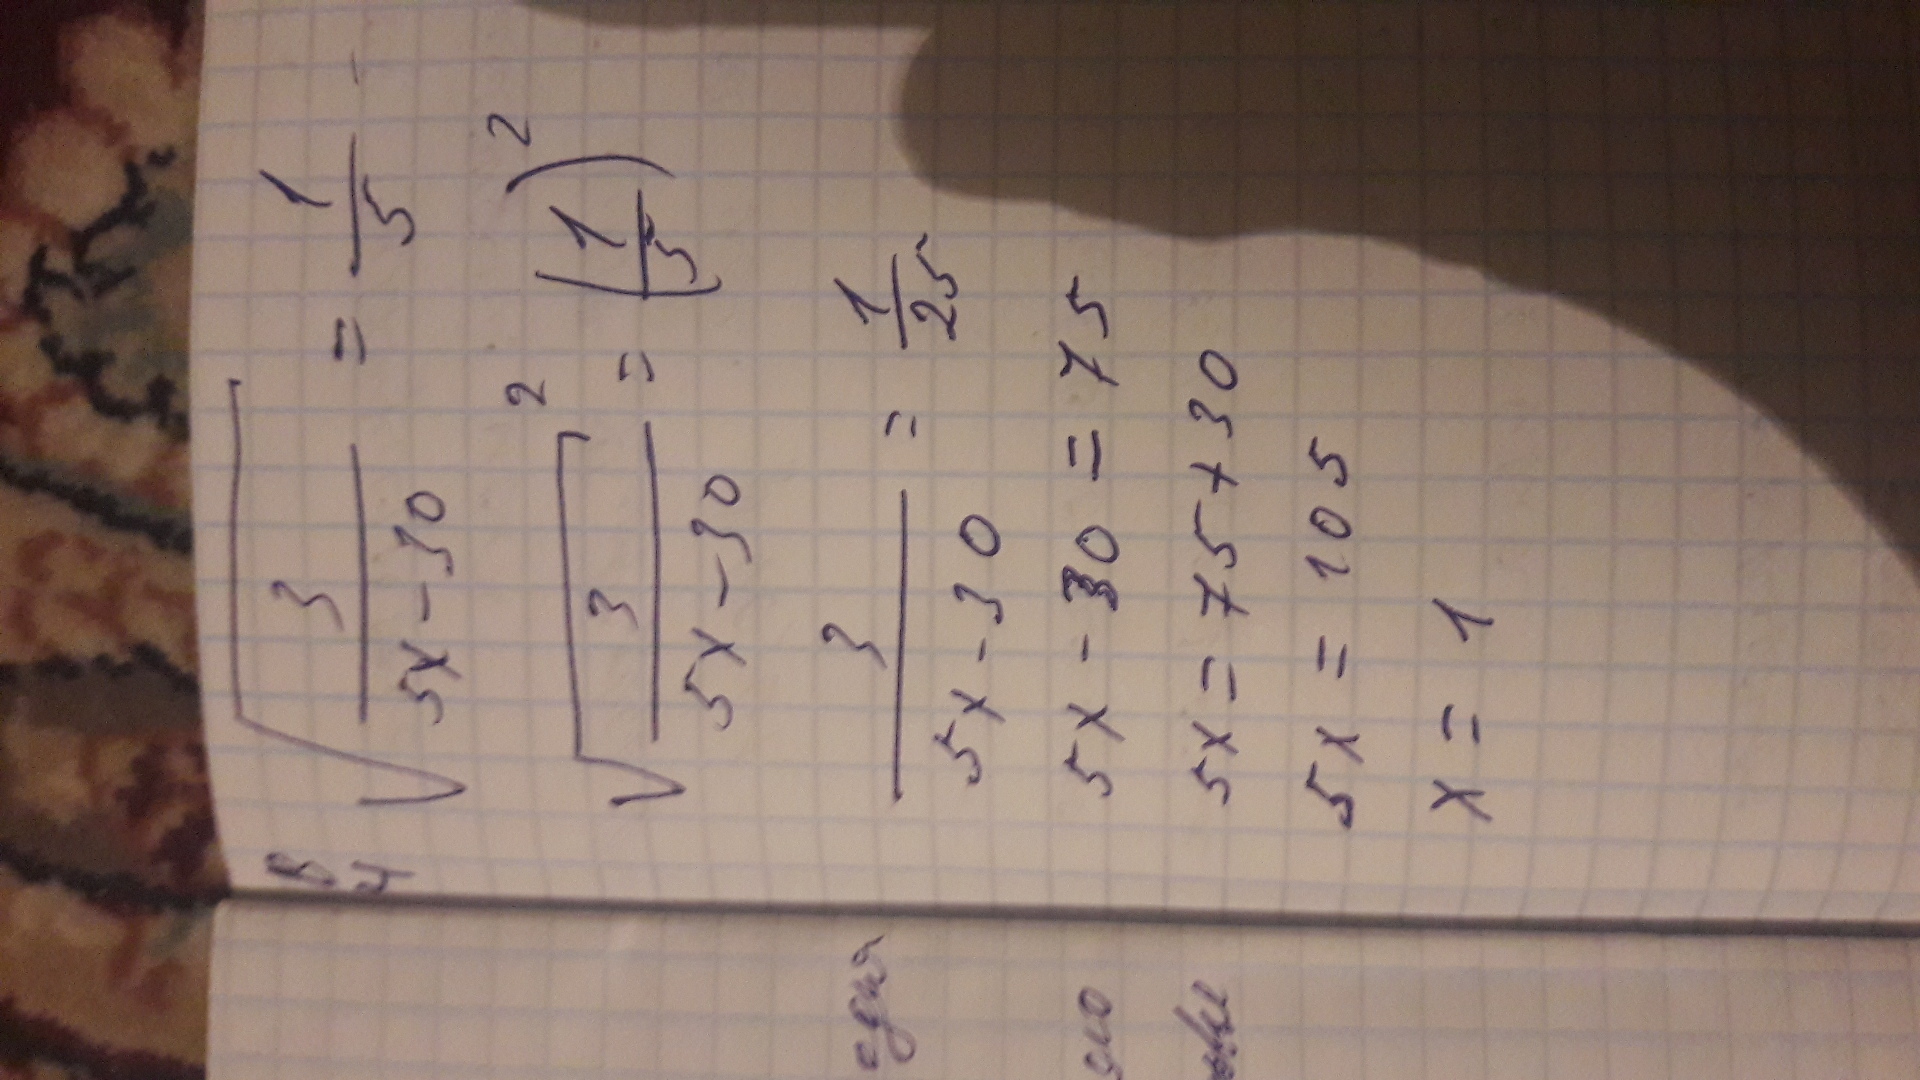 В4 √(3/(5x-30)) = 1/5
√(3/(5x-30))² = (1/5)²
3/(5x-30) = 1/25
5x-30=75
5x=75+30
5x=105
x=1